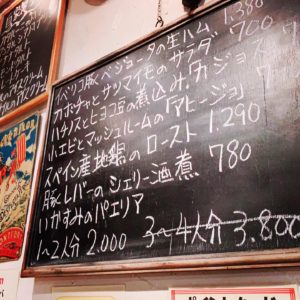 イベリコ豚ベジョータの生ハム 1.380
カボチャとサツマイモのサラダ 700
ハチノスとヒヨコ豆の煮込み「カジョス」
小エビとマッシュルームの「アヒージョ」
スペイン産地鶏のロースト 1.290
豚レバーのシェリー酒煮 780
いかすみのパエリア
1~2人分 2.000 3~4人分 3.800